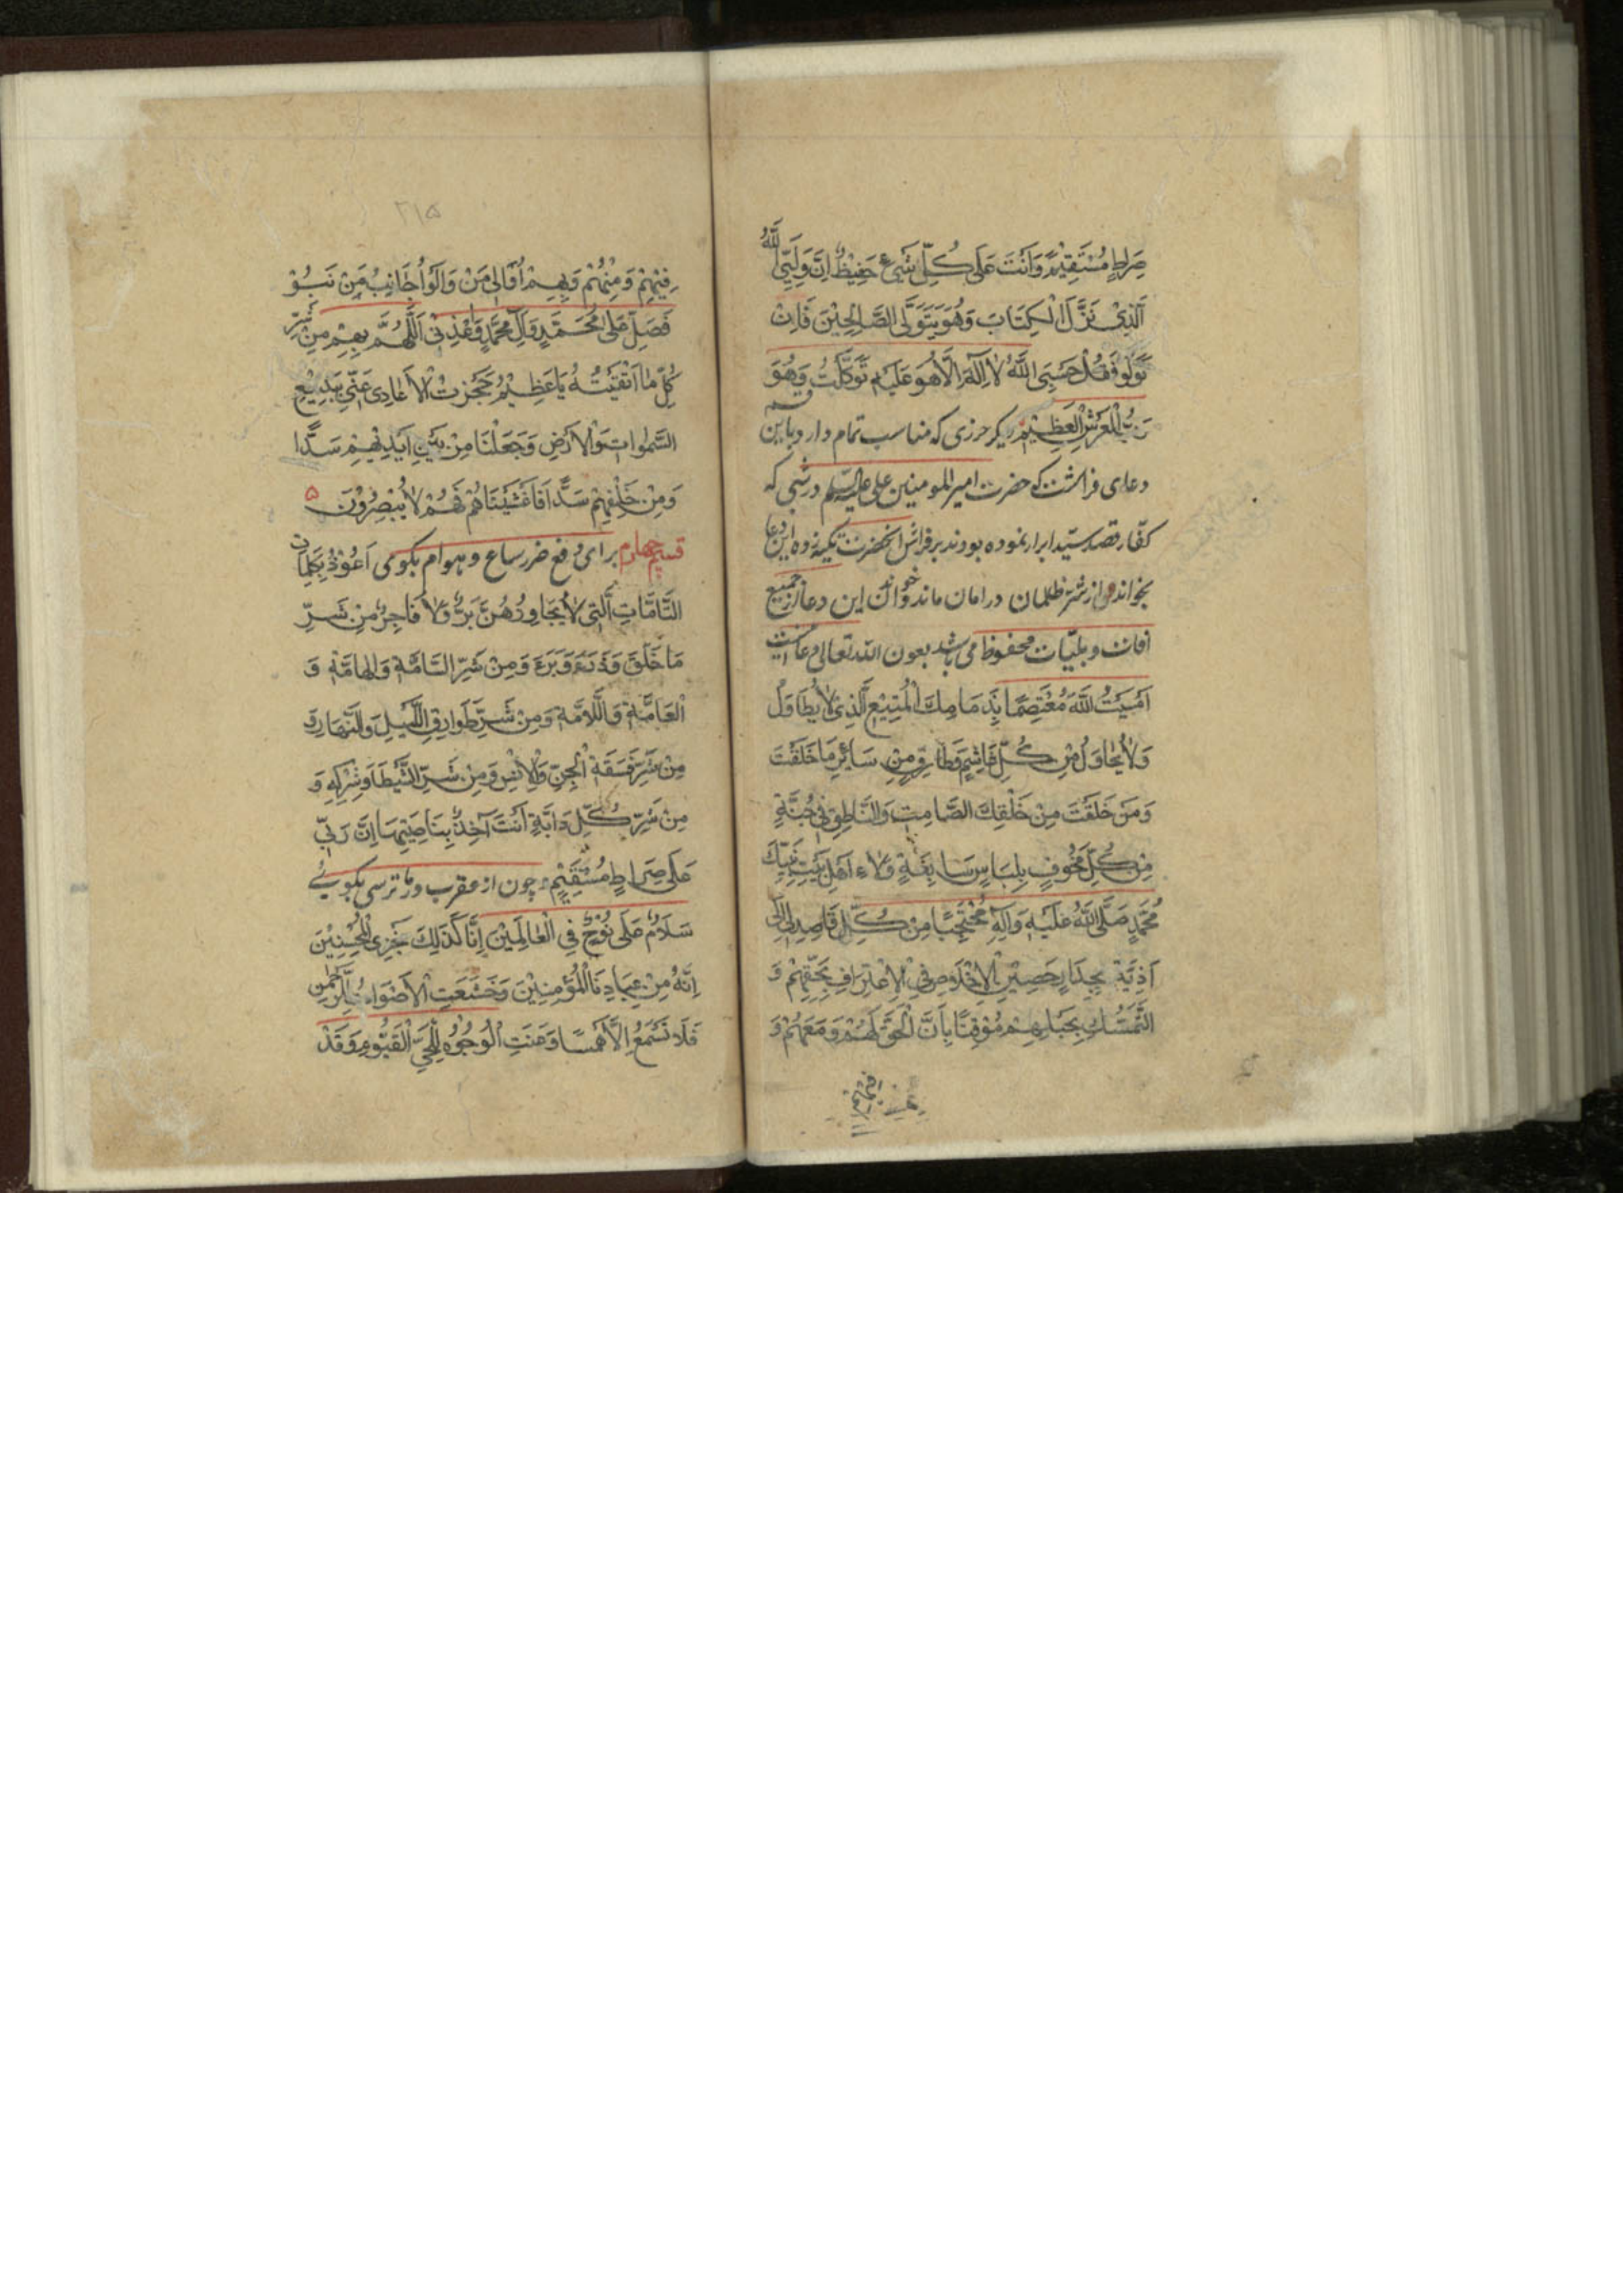 صِرَاطٍ مُسْتَقِيْمٍ وَاَنْتَ عَلَى كُلِّ شَيْءٍ حَفِيْظٌ اِنَّ وَلِيِّيَ اللّٰهُ
الَّذِيْ نَزَّلَ الْكِتَابَ وَهُوَ يَتَوَلَّى الصَّالِحِيْنَ فَاِنْ
تَوَلَّوْا فَقُلْ حَسْبِيَ اللّٰهُ لَا اِلٰهَ اِلَّا هُوَ عَلَيْهِ تَوَكَّلْتُ وَهُوَ
رَبُّ الْعَرْشِ الْعَظِيْمِ دیکر حرزی که مناسب تمام دارد باین
دعای فراشت که حضرت امیر المومنین علی علیه السلام در شبی که
کفّار قصد سیّد ابرار نموده بودند بر فراش آنحضرت تکیه زده این دعا
بخواند و از شر ظلمان در امان ماند و خواننده این دعا از جمیع
افات و بلیّات محفوظ می باشد بعون الله تعالی دعا اینست
اَمْسَيْتُ اللّٰهُمَّ مُعْتَصِمًا بِذِمَامِكَ الْمَنِيْعِ الَّذِيْ لَا يُطَاوَلُ
وَلَا يُحَاوَلُ مِنْ كُلِّ غَاشِمٍ وَطَارِقٍ مِنْ سَائِرِ مَا خَلَقْتَ
وَمَنْ خَلَقْتَ مِنْ خَلْقِكَ الصَّامِتِ وَالنَّاطِقِ فِيْ جُنَّةٍ
مِنْ كُلِّ مَخُوْفٍ بِلِبَاسٍ سَابِغَةٍ وَلَاءِ اَهْلِ بَيْتِ نَبِيِّكَ
مُحَمَّدٍ صَلَّى اللّٰهُ عَلَيْهِ وَآلِهِ مُحْتَجِبًا مِنْ كُلِّ قَاصِدٍ لِيْ اِلٰى
اَذِيَّةٍ بِجِدَارٍ حَصِيْنِ الْاِخْلَاصِ فِي الْاِعْتِرَافِ بِحَقِّهِمْ وَ
التَّمَسُّكِ بِحَبْلِهِمْ مُوْقِنًا بِاَنَّ الْحَقَّ لَهُمْ وَمَعَهُمْ وَ
فيهم
۲۱۵
فِيْهِمْ وَمِنْهُمْ وَبِهِمْ اُوَالِيْ مَنْ وَالَوْا اُجَانِبُ مَنْ
فَصَلِّ عَلٰى مُحَمَّدٍ وَآلِ مُحَمَّدٍ وَاَعِذْنِيْ اَللّٰهُمَّ بِهِمْ مِنْ شَرِّ
كُلِّ مَا اَتَّقِيْتُهُ يَا عَظِيْمُ حَجَزْتُ الْاَعَادِيَ عَنِّيْ بِبَدِيْعِ
السَّمٰوَاتِ وَالْاَرْضِ وَجَعَلْنَا مِنْ بَيْنِ اَيْدِيْهِمْ سَدًّا
وَمِنْ خَلْفِهِمْ سَدًّا فَاَغْشَيْنَاهُمْ فَهُمْ لَا يُبْصِرُوْنَ
قسم چهارم برای دفع ضرر سباع و هوام بکومی اَعُوْذُ بِكَلِمَاتِ
التَّامَّاتِ الَّتِيْ لَا يُجَاوِزُهُنَّ بَرٌّ وَلَا فَاجِرٌ مِنْ شَرِّ
مَا خَلَقَ وَذَرَءَ وَبَرَءَ وَمِنْ شَرِّ السَّامَّةِ وَالْهَامَّةِ وَ
الْعَامَّةِ وَاللَّامَّةِ وَمِنْ شَرِّ طَوَارِقِ اللَّيْلِ وَالنَّهَارِ وَ
مِنْ شَرِّ فَسَقَةِ الْجِنِّ وَالْاِنْسِ وَمِنْ شَرِّ الشَّيْطَانِ وَشِرْكِهِ وَ
مِنْ شَرِّ كُلِّ دَابَّةٍ اَنْتَ آخِذٌ بِنَاصِيَتِهَا اِنَّ رَبِّيْ
عَلٰى صِرَاطٍ مُسْتَقِيْمٍ چون از عقرب و مار ترسی بکوئے
سَلَامٌ عَلٰى نُوْحٍ فِي الْعَالَمِيْنَ اِنَّا كَذٰلِكَ نَجْزِي الْمُحْسِنِيْنَ
اِنَّهُ مِنْ عِبَادِنَا الْمُؤْمِنِيْنَ وَخَشَعَتِ الْاَصْوَاتُ لِلرَّحْمٰنِ
فَلَا تَسْمَعُ اِلَّا هَمْسًا وَعَنَتِ الْوُجُوْهُ لِلْحَيِّ الْقَيُّوْمِ وَقَدْ